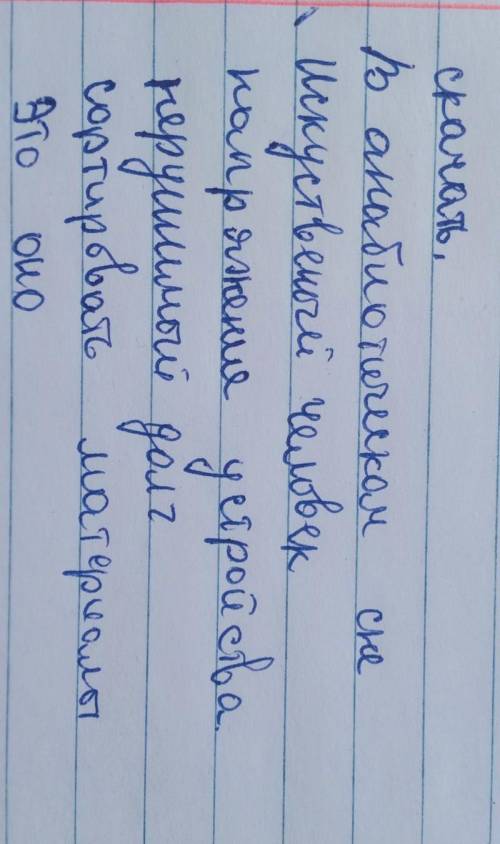 скачать,
В анабиотическом сне
Искуственый человек
напряжение устройства.
нерушимый долг
сортировать материалы
это оно